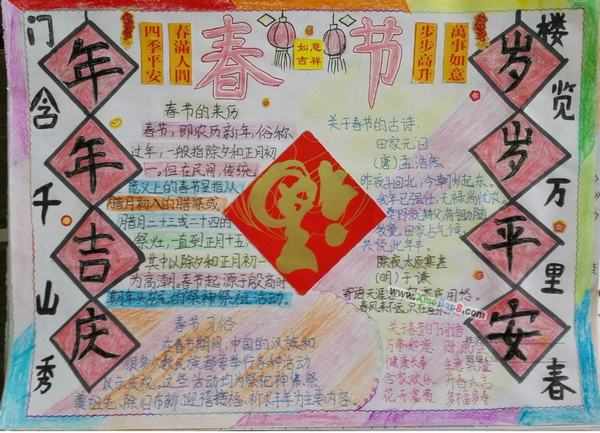 门含千山秀
楼览万里春
年年吉庆
岁岁平安
四季平安
春满人間
春节
如意
吉祥
步步高升
萬事如意
春节的来历
春节,即农历新年,俗称
过年,一般指除夕和正月初
一。但在民间,传统
意义上的春节是指从
腊月初八的腊祭或
腊月二十三或二十四的
祭灶,一直到正月十五,
其中以除夕和正月初一
为高潮。春节起源于殷商时
期年头岁尾的祭神祭祖活动
春节习俗
在春节期间,中国的汉族和
很多少数民族都要举行各种活动
以示庆祝。这些活动均为祭祀神佛、祭
奠祖先、除旧布新、迎禧接福、祈求丰年为主要内容。
关于春节的古诗
田家元日
(唐)孟浩然
昨夜斗回北,今朝岁起东。
我年已强仕,无禄尚忧农。
田家占气候,
共说此年丰。
除夜太原寒甚
(明)于谦
寄语天涯客,
春风来不远,只在
万事如意
健康长寿
合家欢乐
花开富贵